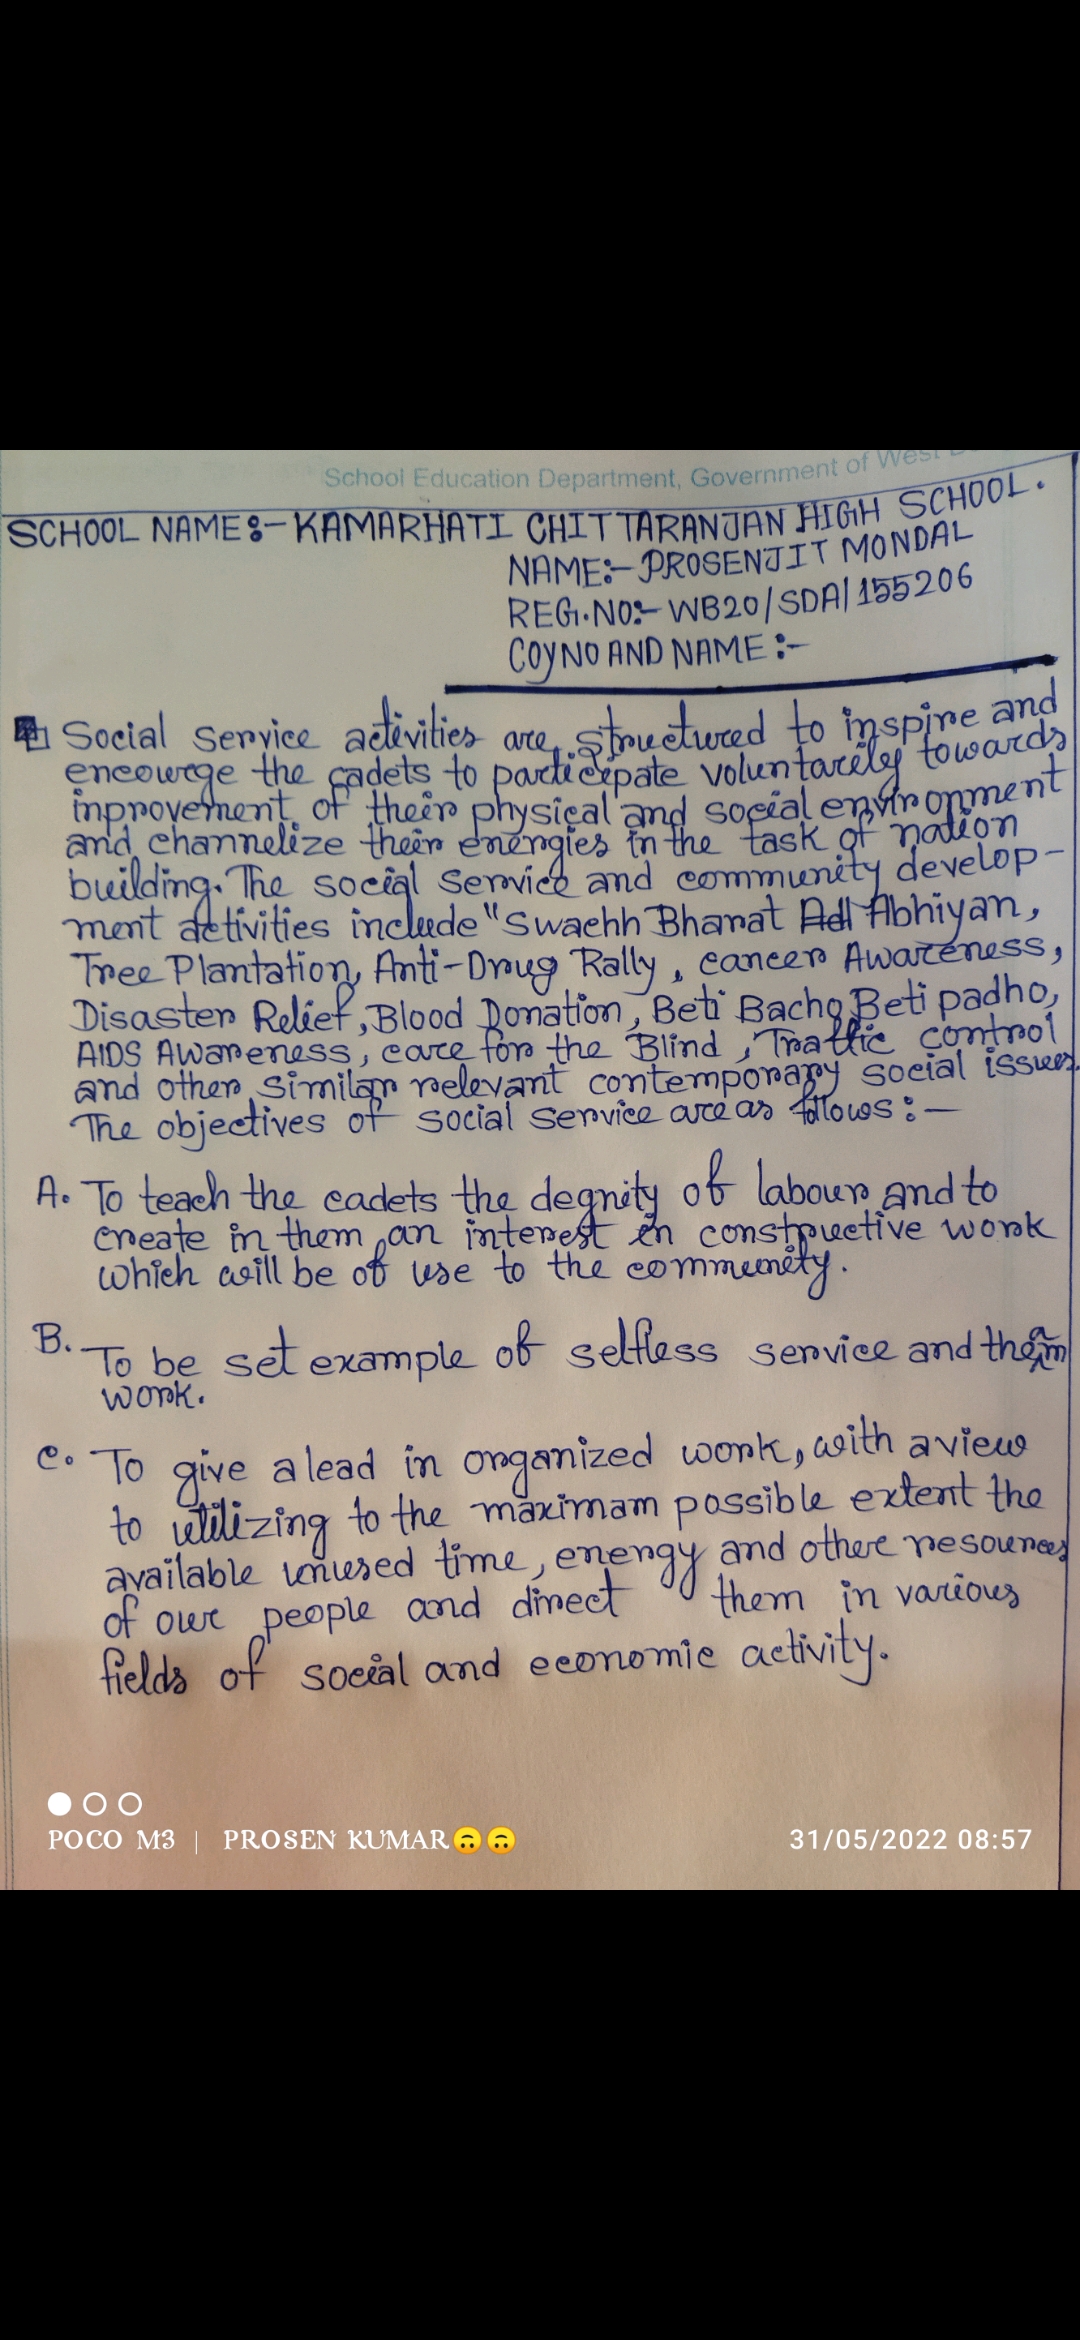 School Education Department, Government of West
SCHOOL NAME:- KAMARHATI CHITTARANJAN HIGH SCHOOL.
NAME:- PROSENJIT MONDAL
REG.NO:- WB20/SDA/155206
COY NO AND NAME :-
Social service activities are structured to inspire and
encourge the cadets to participate voluntarily towards
inprovement of their physical and social environment
and channelize their energies in the task of nation
building. The social service and community develop-
ment activities include "Swachh Bharat Adl Abhiyan,
Tree Plantation, Anti-Drug Rally, cancer Awareness,
Disaster Relief, Blood Donation, Beti Bacho Beti padho,
AIDS Awareness, care for the Blind, Traffic control
and other similar relevant contemporary social issues.
The objectives of social service are as follows :-
A. To teach the cadets the degnity of labour and to
create in them an interest in constructive work
which will be of use to the community.
B. To be set example of selfless service and them
work.
C. To give a lead in organized work, with a view
to utilizing to the maximam possible extent the
available unused time, energy and other resources
of our people and direct them in various
fields of social and economic activity.
POCO M3 | PROSEN KUMAR🙃🙃
31/05/2022 08:57